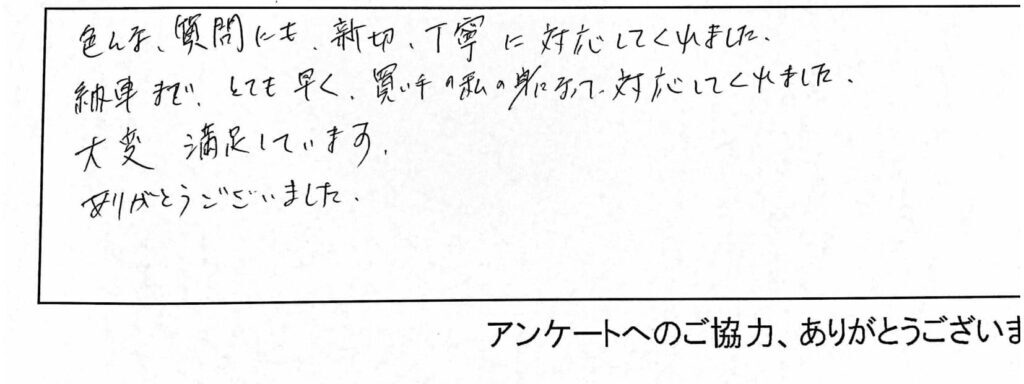 色んな、質問にも、新切、丁寧に対応してくれました。
納車まで、とても早く、買い手の私の身になって対応してくれました。
大変 満足しています。
ありがとうございました。
アンケートへのご協力、ありがとうございま